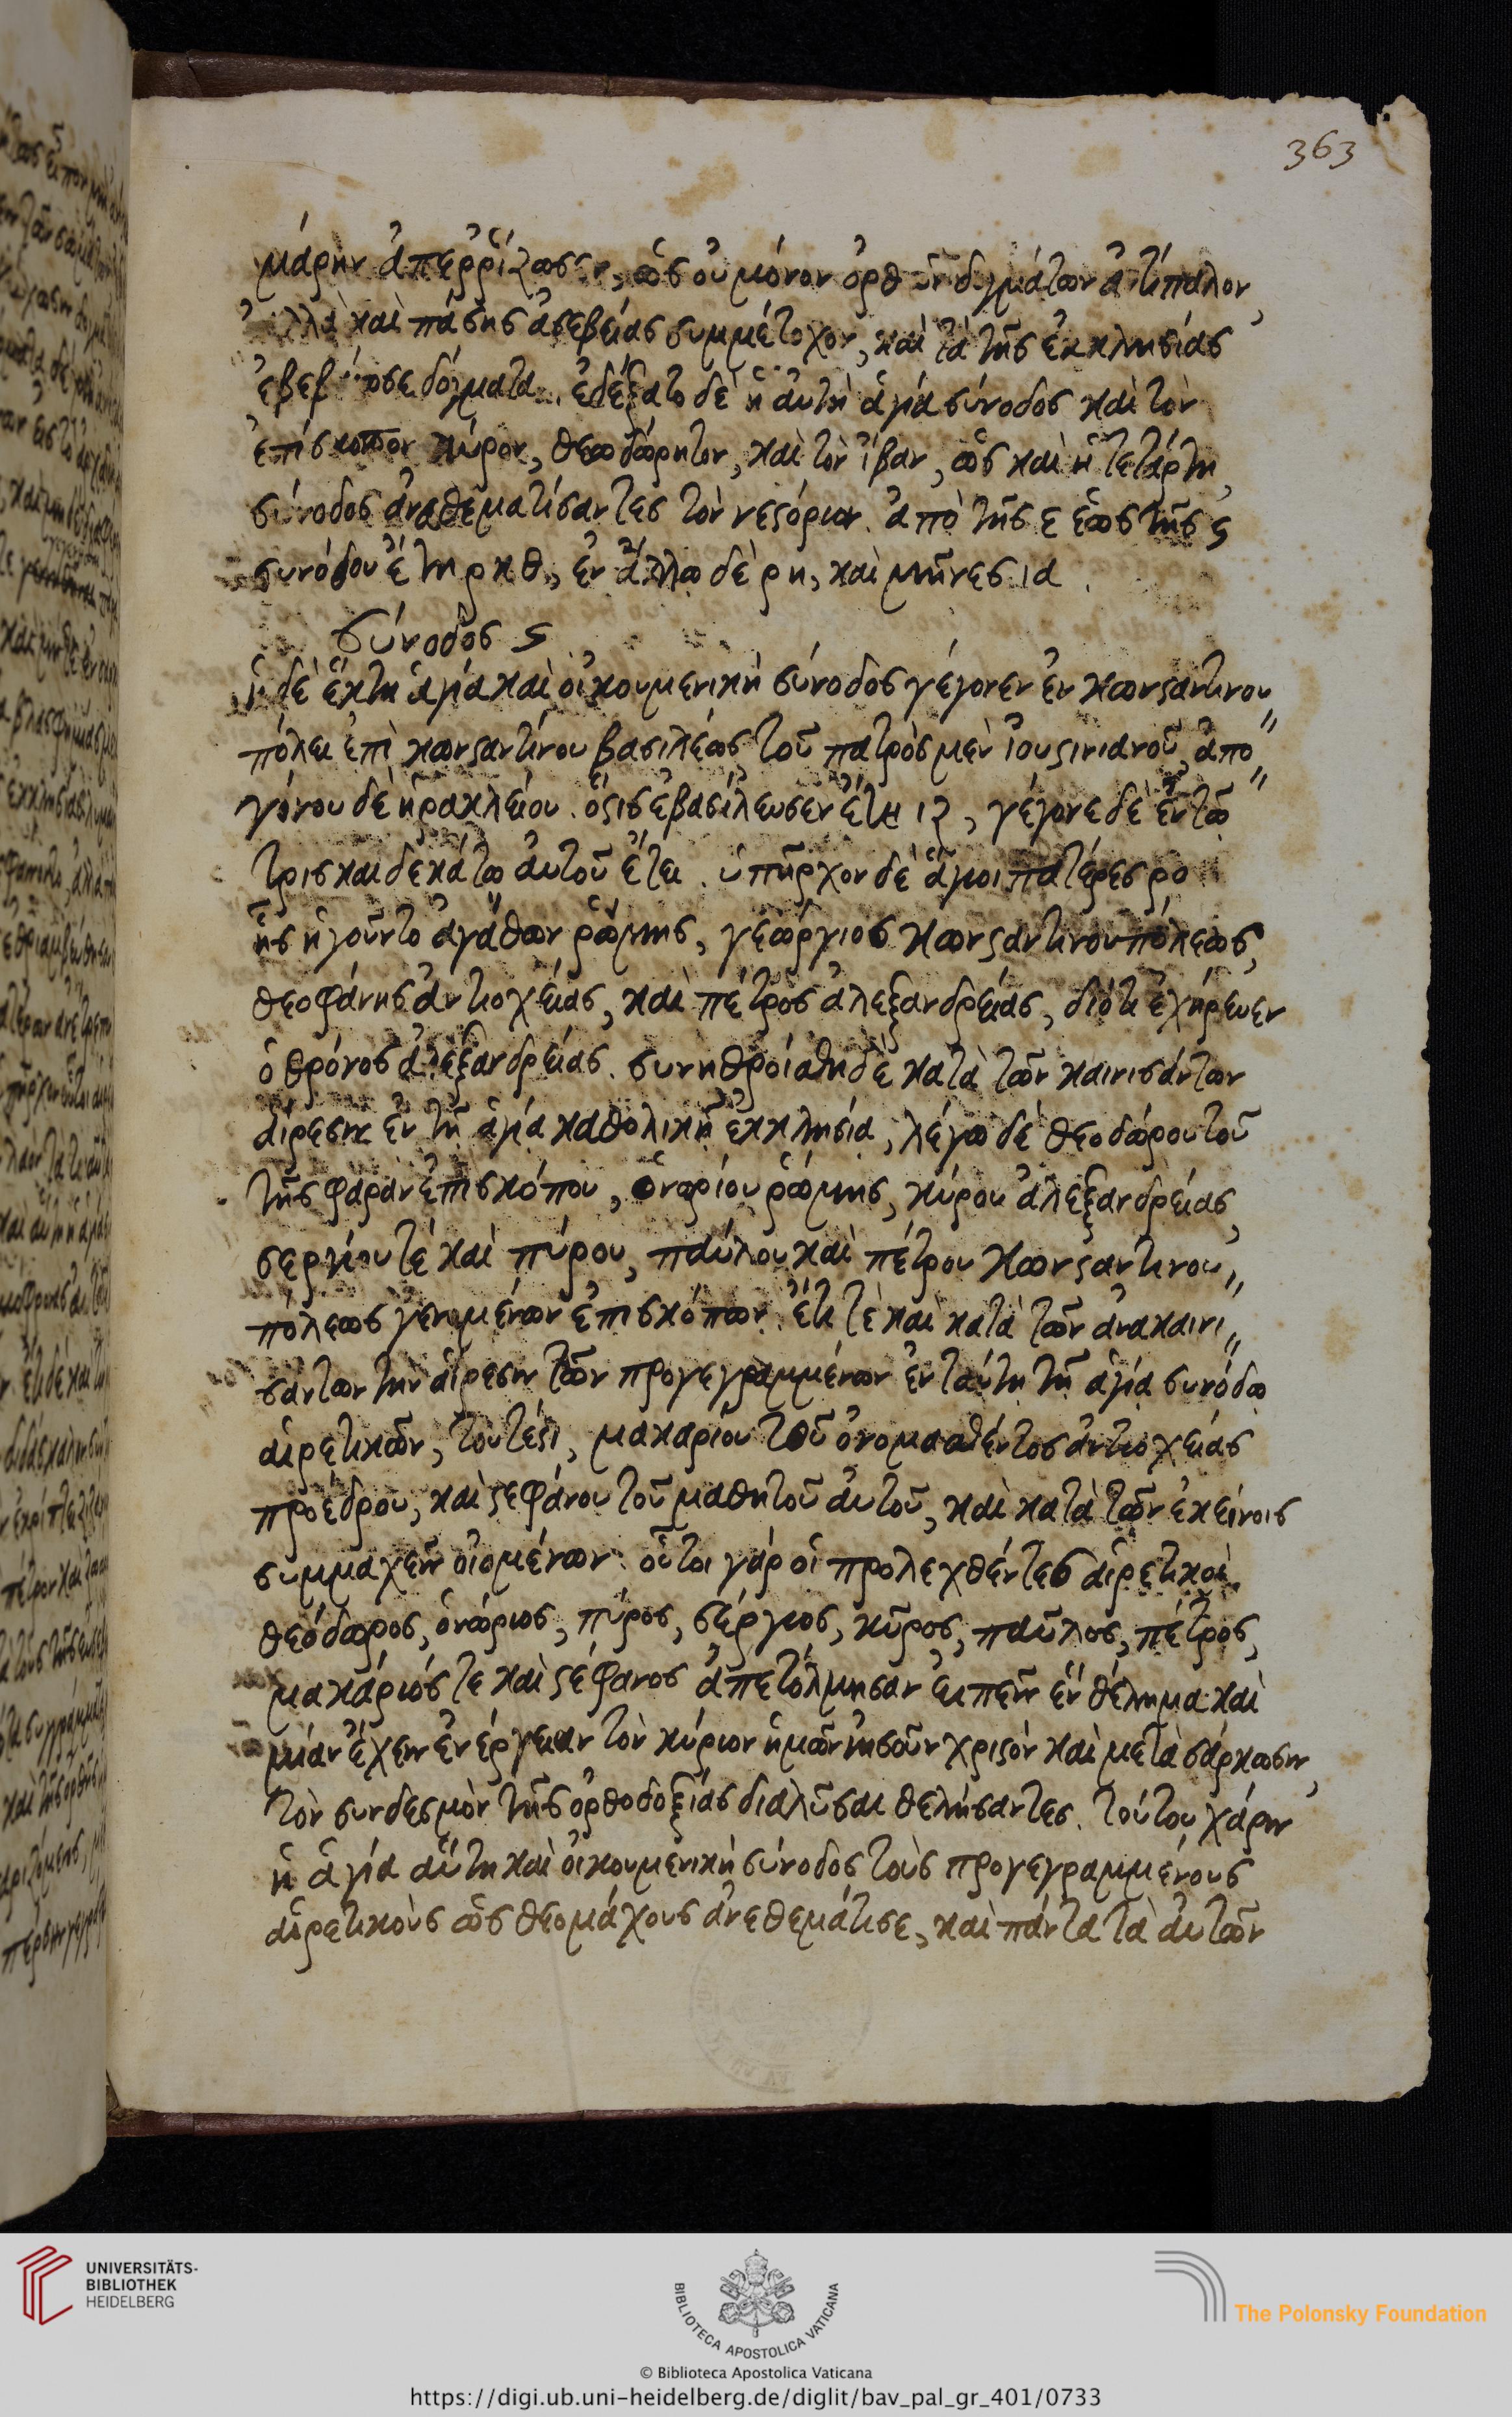 363
μάρην ἀπερρίζωσεν, ὡς οὐ μόνον ὀρθῶν δογμάτων ἀντίπαλον,
ἀλλὰ καὶ πάσης ἀσεβείας συμμέτοχον, καὶ τὰ τῆς ἐκκλησίας
ἐβεβαίωσε δόγματα. ἐδέξατο δὲ ἡ αὐτὴ ἁγία σύνοδος καὶ τὸν
ἐπίσκοπον κύρον, θεοδώρητον, καὶ τὸν ἴβαν, ὡς καὶ ἡ τετάρτη
σύνοδος ἀναθεματίσαντες τὸν νεστόριον. ἀπὸ τῆς ε ἕως τῆς ϛ
συνόδου ἔτη ρκθ, ἐν ἄλλω δὲ ρη, καὶ μῆνες ια.
Σύνοδος ϛ
ἡ δὲ ἕκτη ἁγία καὶ οἰκουμενικὴ σύνοδος γέγονεν ἐν κωνσταντινου
πόλει ἐπὶ κωνσταντίνου βασιλέως, τοῦ πατρὸς μὲν ἰουστινιανοῦ, ἀπο
γόνου δὲ ἡρακλείου. ὅστις ἐβασίλευσεν ἔτη ιζ, γέγονε δὲ ἐν τῶ
τρισκαιδεκάτω αὐτοῦ ἔτει. ὑπῆρχον δὲ ἅγιοι πατέρες ρο
ἧς ἡγοῦντο ἀγάθων ῥώμης, γεώργιος κωνσταντινουπόλεως,
θεοφάνης ἀντιοχείας, καὶ πέτρος ἀλεξανδρείας, διότι ἐχήρευεν
ὁ θρόνος ἀλεξανδρείας. συνηθροίσθη δὲ κατὰ τῶν καινισάντων
αἵρεσιν ἐν τῆ ἁγία καθολικῆ ἐκκλησία, λέγω δὲ θεοδώρου τοῦ
τῆς φαρὰν ἐπισκόπου, ὀνωρίου ῥώμης, κύρου ἀλεξανδρείας,
σεργίου τὲ καὶ πύρου, παύλου καὶ πέτρου κωνσταντινου
πόλεως γενομένων ἐπισκόπων. ἔτι τὲ καὶ κατὰ τῶν ἀνακαινι
σάντων τὴν αἵρεσιν τῶν προγεγραμμένων ἐν ταύτη τῆ ἁγία συνόδω
αἱρετικῶν, τουτέστι, μακαρίου τοῦ ὀνομασθέντος ἀντιοχείας
προέδρου, καὶ στεφάνου τοῦ μαθητοῦ αὐτοῦ, καὶ κατὰ τῶν ἐκείνοις
συμμαχεῖν οἰομένων. οὗτοι γάρ οἱ προλεχθέντες αἱρετικοὶ
θεόδωρος, ὀνώριος, πύρος, σέργιος, κῦρος, παῦλος, πέτρος,
μακάριός τε καὶ στέφανος ἀπετόλμησαν εἰπεῖν ἓν θέλημα καὶ
μίαν ἔχειν ἐνέργειαν τὸν κύριον ἡμῶν ἰησοῦν χριστὸν καὶ μετὰ σάρκωσιν,
τὸν συνδεσμὸν τῆς ὀρθοδοξίας διαλῦσαι θελήσαντες. τούτου χάριν
ἡ ἁγία αὕτη καὶ οἰκουμενικὴ σύνοδος τοὺς προγεγραμμένους
αἱρετικοὺς ὡς θεομάχους ἀνεθεμάτισε, καὶ πάντα τὰ αὐτῶν
UNIVERSITÄTS-
BIBLIOTHEK
HEIDELBERG
BIBLIOTECA APOSTOLICA VATICANA
The Polonsky Foundation
© Biblioteca Apostolica Vaticana
https://digi.ub.uni-heidelberg.de/diglit/bav_pal_gr_401/0733